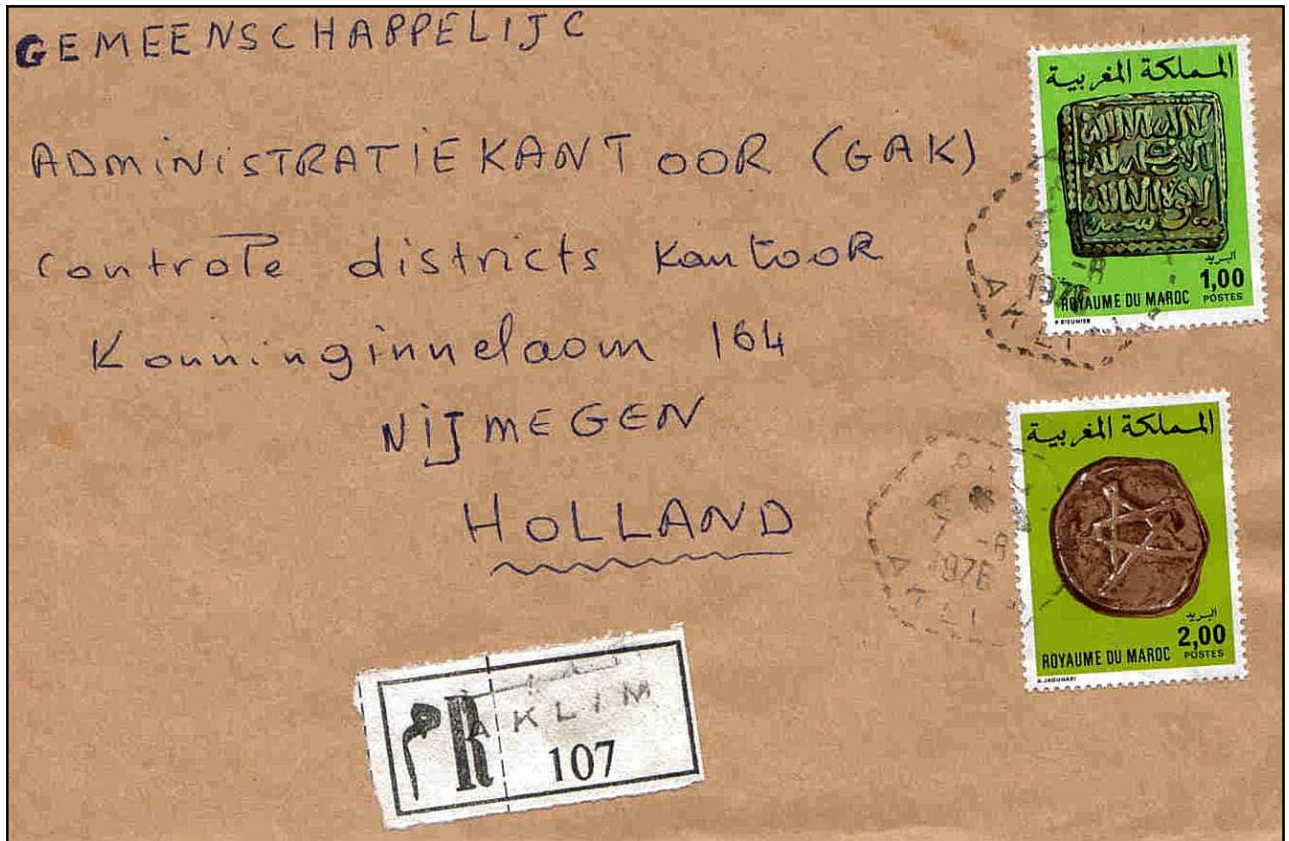 GEMEENSCHAPPELIJC
ADMINISTRATIEKANTOOR (GAK)
Controle districts Kantoor
Konninginnelaom 164
NIJMEGEN
HOLLAND
المملكة المغربية
البريد
1,00
ROYAUME DU MAROC POSTES
1976
AKLIM
المملكة المغربية
البريد
2,00
ROYAUME DU MAROC POSTES
7 -8
1976
م R AKLIM
107